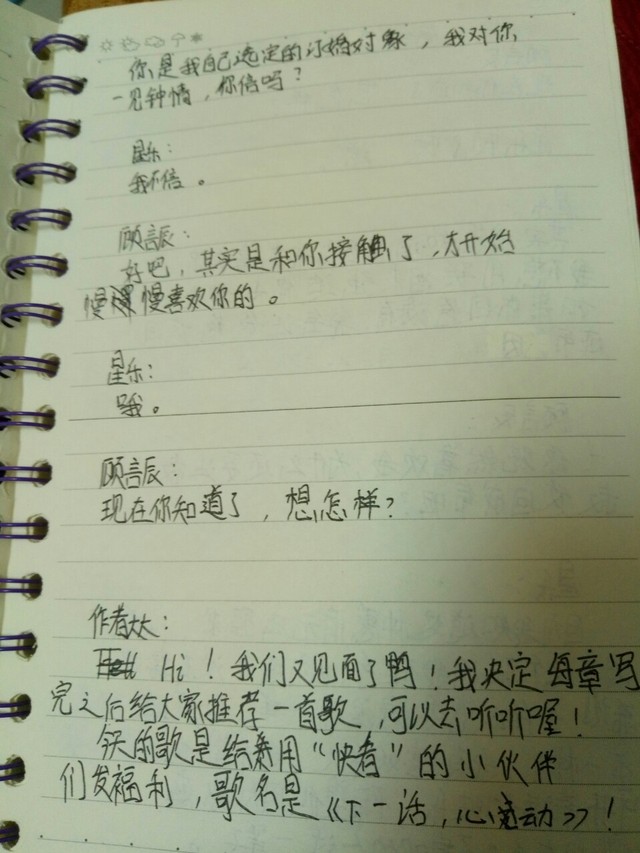 你是我自己选定的订婚对象，我对你
一见钟情，你信吗？
星乐：
我不信。
顾言辰：
好吧，其实是和你接触了，才开始
慢慢喜欢你的。
星乐：
哦。
顾言辰：
现在你知道了，想怎样？
作者大大：
Hi！我们又见面了鸭！我决定每章写
完之后给大家推荐一首歌，可以去听听喔！
的歌是给采用“快看”的小伙伴
们发福利，歌名是《下一话，心动》！